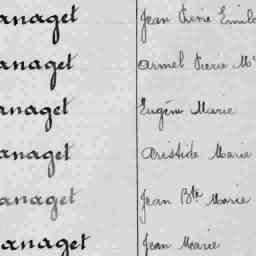 anaget Jean Pierre Emile
anaget Armel Pierre M
anaget Eugène Marie
anaget Aristide Marie
anaget Jean Bte Marie
anaget Jean Marie